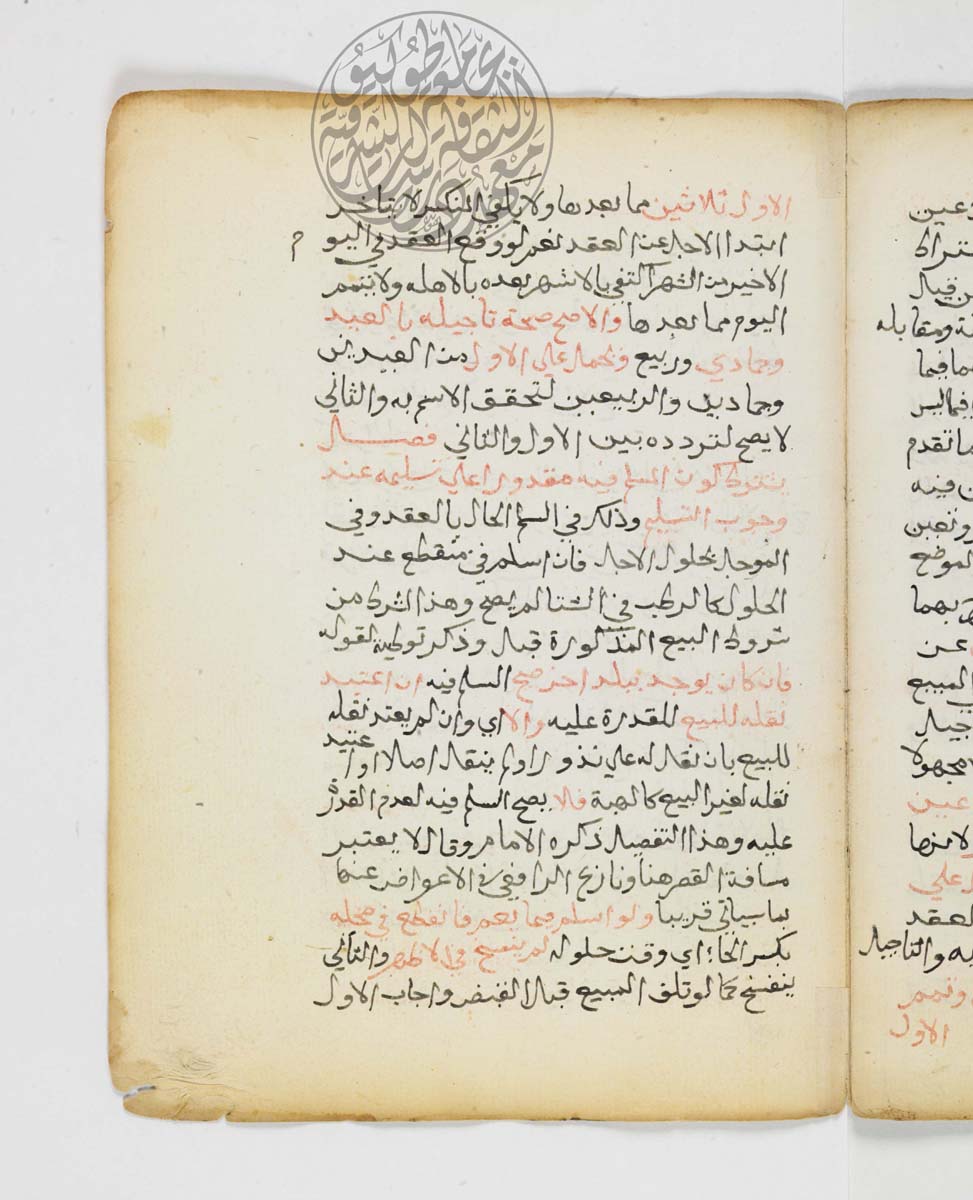 الاول ثلاثين مما بعدها ولا يكفي المنكسر لا يتاخر
ابتدا الاجل عن العقد نعم لو وقع العقد في اليوم
الاخير من الشهر اكتفي بالاشهر بعده بالاهله ولا يتمم
اليوم مما بعدها والاصح صحة تاجيله بالعيد
وجمادي وربيع ويحمل علي الاول من العيدين
وجمادين والربيعين لتحقق الاسم به والثاني
لا يصح لتردده بين الاول والثاني فصل
يشترط كون المسلم فيه مقدورا علي تسليمه عند
وجوب التسليم وذلك في السلم الحال بالعقد وفي
الموجل بحلول الاجل فان اسلم في منقطع عند
الحلول كالرطب في الشتا لم يصح وهذا الشرط من
شروط البيع المذكورة قبل وذكر توطية لقوله
فان كان يوجد ببلد اخر صح السلم فيه ان اعتيد
نقله للبيع للقدرة عليه والا اي وان لم يعتد نقله
للبيع بان نقل له علي نذور او لم ينقل اصلا او اعتيد
نقله لغير البيع كالهبة فلا يصح السلم فيه لعدم القدرة
عليه وهذا التفصيل ذكره الامام وقال لا يعتبر
مسافة القصر هنا ونازع الرافعي في الاعراض عنها
بما سياتي قريبا ولو اسلم فيما يعم فانقطع في محله
بكسر الحا اي وقت حلوله لم ينفسخ في الاظهر والثاني
ينفسخ كما لو تلف المبيع قبل القبض واجاب الاول
عين
ن قبل
ة ومقابله
ما تقدم
ن فيه
الموضع
بهما
عن
المبيع
مجهولا
عين
لانها
علي
لعقد
به والتاجيل
وتمم
الاول